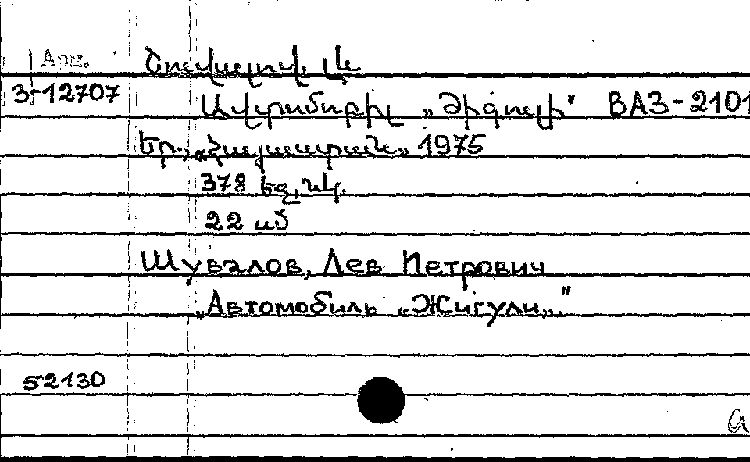 Շուվալով, Լև
3-12707
Ավտոմոբիլ „Ժիգուլի" ВАЗ-2101
Եր., „Հայաստան„ 1975
378 էջ, նկ.
22 սմ
Шувалов, Лев Петрович
„Автомобиль „Жигули„..."
52130